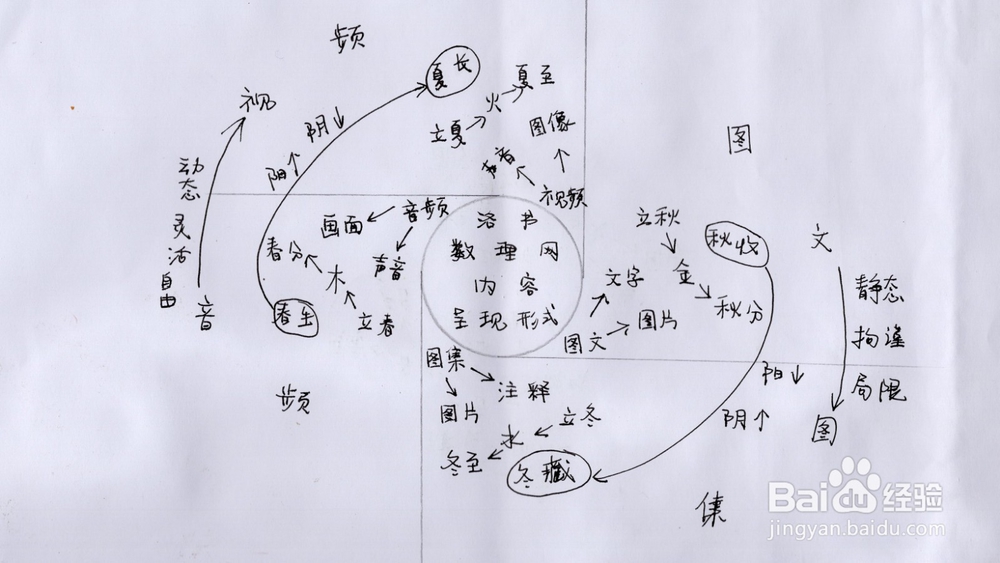 频
夏长
夏至
火
立夏
图像
声音
视频
视
阴↓
阳↑
动态
灵活
自由
音
音频
画面
声音
春分
木
立春
春生
频
洛书
数理网
内容
呈现形式
图
立秋
秋收
金
秋分
文字
图片
图文
文
静态
拘谨
局限
图
阳↓
阴↑
图集
注释
图片
立冬
水
冬至
冬藏
集
Baidu经验
jingyan.baidu.com